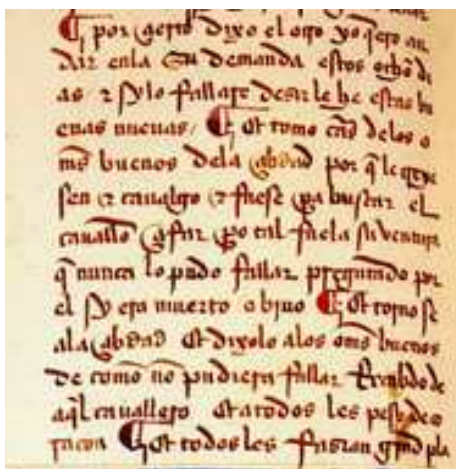 por çierto dixo el otro yo q̃ero an
dar en la su demanda estos ocho di
as ⁊ sy lo fallare desir le he estas bu
enas nueuas / Et tomo cãs delos o
mẽs buenos dela çibdad por q̃ le
sen ⁊ caualgo ⁊ fuese pa buscar el
cauallo çifar po tal fue la su ventura
q̃ nunca lo pudo fallar preguntado por
el sy era muerto o biuo Et torno se
ala çibdad Et dixolo alos omẽs buenos
de como nõ pudiera fallar rrecabdo de
aq̃l cauallero Et a todos les peso de
raçon Et todos les fisieron grãd pla